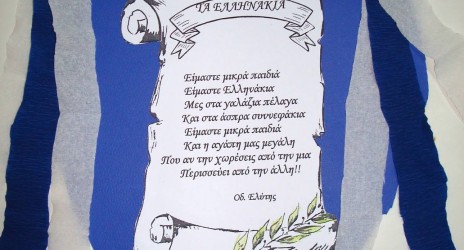 ΤΑ ΕΛΛΗΝΑΚΙΑ
Είμαστε μικρά παιδιά
Είμαστε Ελληνάκια
Μες στα γαλάζια πέλαγα
Και στα άσπρα συννεφάκια
Είμαστε μικρά παιδιά
Και η αγάπη μας μεγάλη
Που αν την χωρέσεις από την μια
Περισσεύει από την άλλη!!
Οδ. Ελύτης